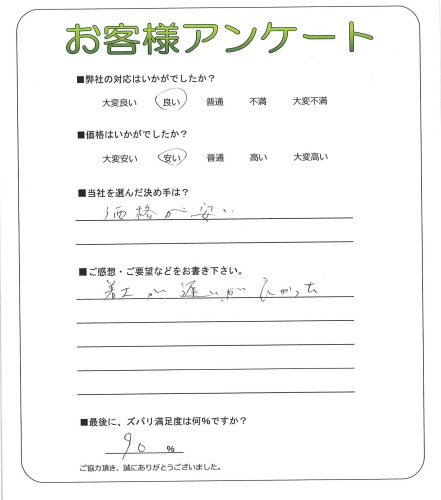 お客様アンケート
■弊社の対応はいかがでしたか？
大変良い 良い 普通 不満 大変不満
■価格はいかがでしたか？
大変安い 安い 普通 高い 大変高い
■当社を選んだ決め手は？
価格が安い
■ご感想・ご要望などをお書き下さい。
着工が遅いがよかった
■最後に、ズバリ満足度は何％ですか？
90 ％
ご協力頂き、誠にありがとうございました。